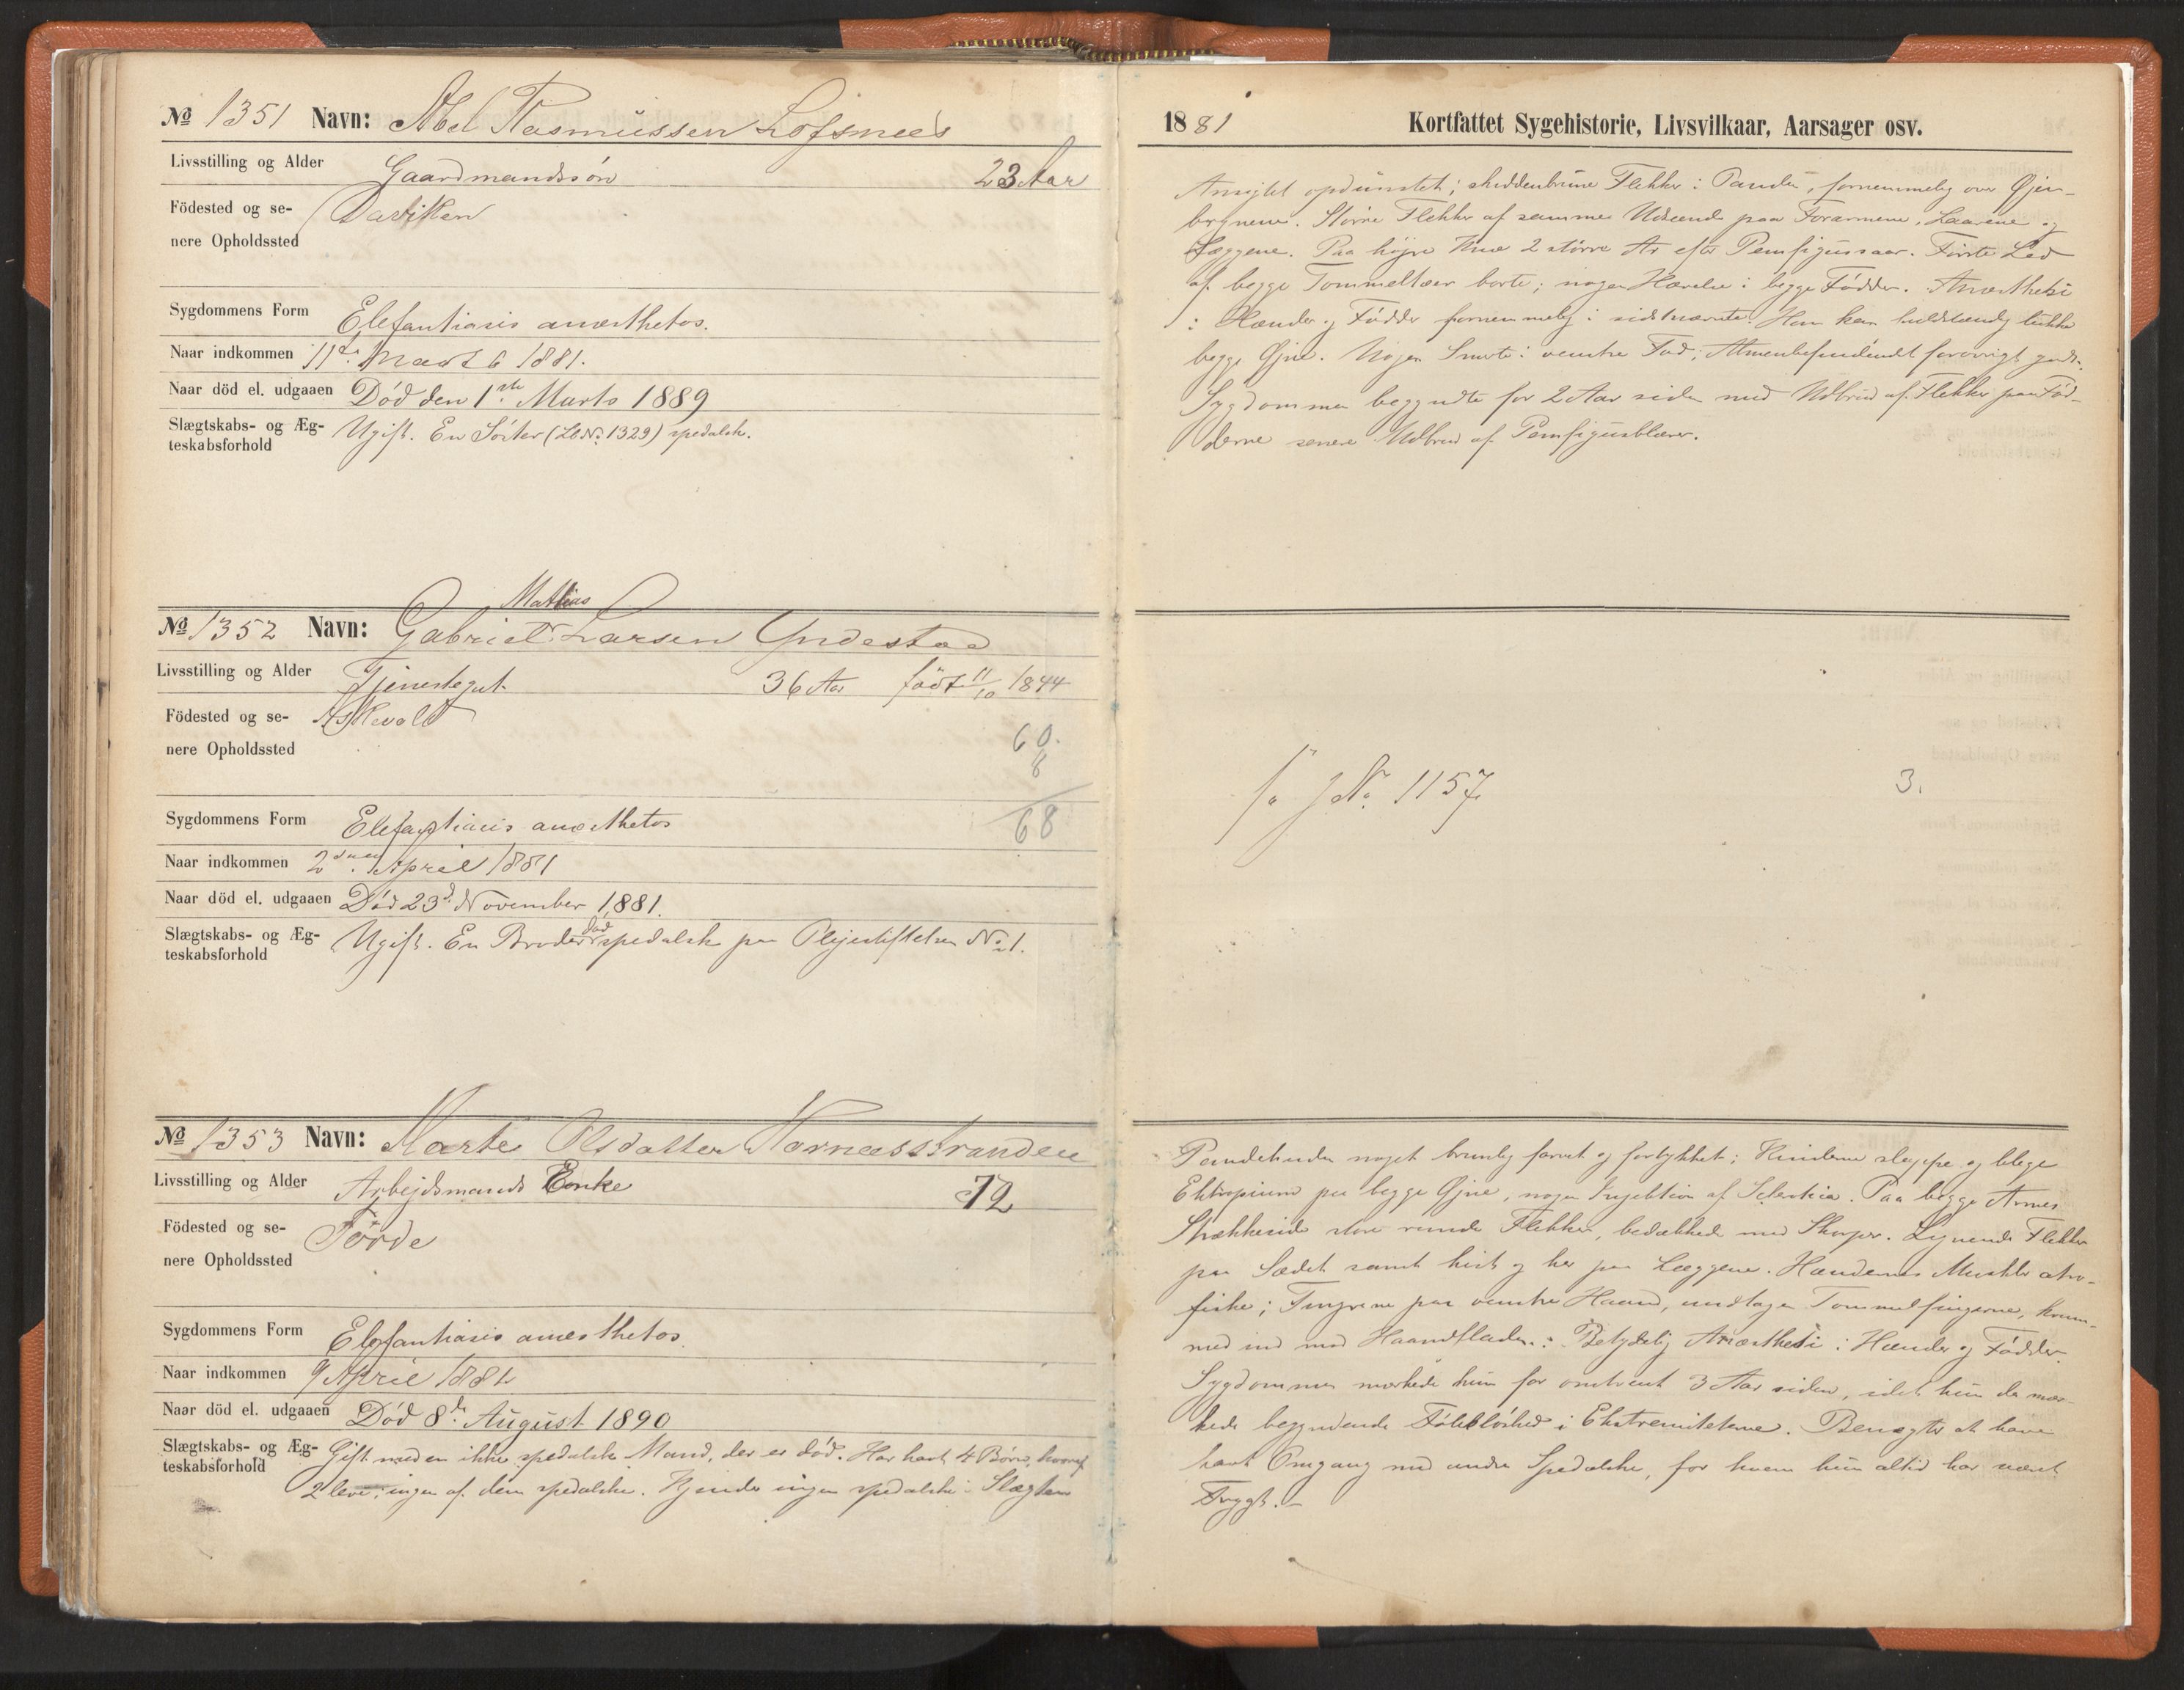 No 1351 Navn: Abel Rasmussen Lofsnæs
Livsstilling og Alder Gaardmandssøn 23 Aar
Födested og se- Daviken
nere Opholdssted
Sygdommens Form Elefantiasis anæsthetos.
Naar indkommen 11te Marts 1881.
Naar död el. udgaaen Död den 1ste Marts 1889
Slægtskabs- og Æg- Ugift. En Söster (LbNo. 1329) spedalsk.
teskabsforhold
Mathias
No 1352 Navn: Gabriel Larsen Yndestad
Livsstilling og Alder Tjenestegut 36 Aar födt 11/10 1844
Födested og se- Askevold
nere Opholdssted
60.
8
68
Sygdommens Form Elefantiasis anæsthetos
Naar indkommen 2den April 1881
Naar död el. udgaaen Död 23d November 1881.
död
Slægtskabs- og Æg- Ugift. En Broder spedalsk paa Plejestiftelsen No 1.
teskabsforhold
No 1353 Navn: Marte Olsdatter Hornæsstranden
Livsstilling og Alder Arbejdsmands Enke 72
Födested og se- Förde
nere Opholdssted
Sygdommens Form Elefantiasis anæsthetos
Naar indkommen 9 April 1881
Naar död el. udgaaen Död 8de August 1890
Slægtskabs- og Æg- Gift med en ikke spedalsk Mand, der er död. Har havt 4 Börn, hvoraf
teskabsforhold
2 leve; ingen af dem spedalske. Kjender ingen spedalske i Slægten
1881 Kortfattet Sygehistorie, Livsvilkaar, Aarsager osv.
Ansigtet opdunstet; skiddenbrune Flekker i Panden, fornemmelig over Øjen-
brynene. Större Flekker af samme Udseende paa Forarmene, Laarene og
Læggene. Paa höjre Knæ 2 större Ar efter Pemfigussaar. Förste Led
af begge Tommeltæer borte; nogen Hævelse i begge Födder. Anæsthesi
i Hænder og Födder fornemmelig i sidstnævnte. Han kan fuldstændig lukke
begge Øjne. Nogen Smerte i venstre Fod; Almenbefindendet forövrigt godt.
Sygdommen begyndte for 2 Aar siden med Udbrud af Flekker paa Föd-
derne senere Udbrud af Pemfigusblærer.
No. 1157 3.
Pandehuden noget brunlig farvet og fortykket; Kinderne slappe og blege
Ektropium paa begge Øjne, nogen Injektion af Sclerotica. Paa begge Armes
Strækkeside store runde Flekker, bedækkede med Skorper. Lignende Flekker
paa Sædet samt hist og her paa Læggene. Hændernes Muskler atro-
fiske; Fingrene paa venstre Haand, undtagen Tommelfingeren, krum-
med ind mod Haandfladen. Betydelig Anæsthesi i Hænder og Födder.
Sygdommen mærkede hun for omtrent 3 Aar siden, idet hun da mær-
kede begyndende Fölelöshed i Ekstremiteterne. Benægter at have
havt Omgang med andre Spedalske, for hvem hun altid har været
Frygt.